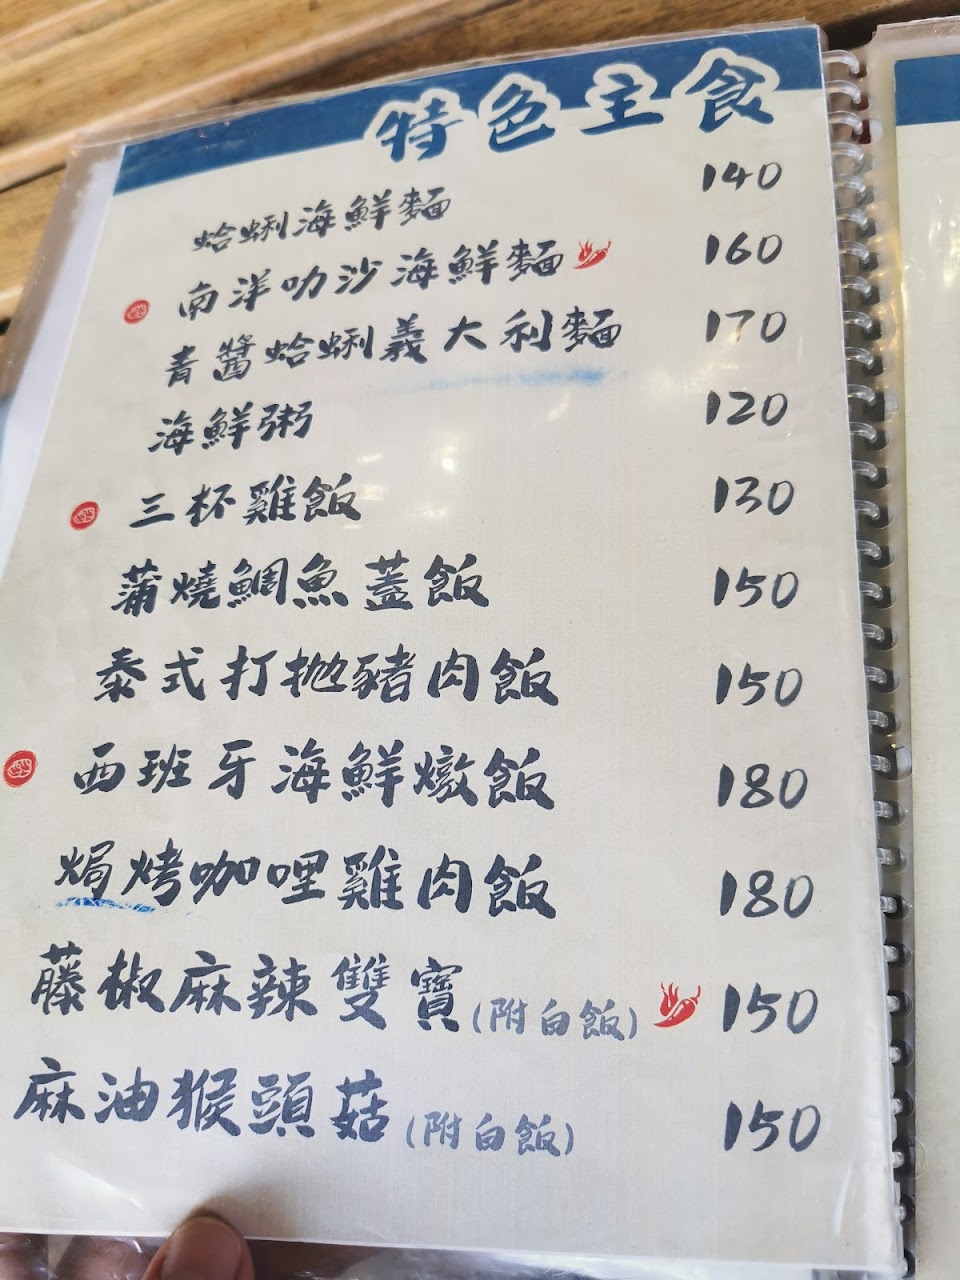 特色主食
蛤蜊海鮮麵 140
南洋叻沙海鮮麵 160
青醬蛤蜊義大利麵 170
海鮮粥 120
三杯雞飯 130
蒲燒鯛魚蓋飯 150
泰式打拋豬肉飯 150
西班牙海鮮燉飯 180
焗烤咖哩雞肉飯 180
藤椒麻辣雙寶(附白飯) 150
麻油猴頭菇(附白飯) 150